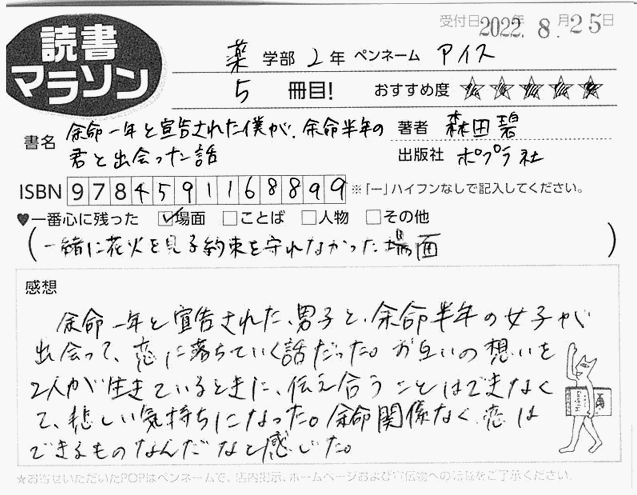 受付日2022年8月25日
読書
マラソン
薬学部2年 ペンネーム アイス
5冊目! おすすめ度 ★★★★★
書名 余命一年と宣告された僕が、余命半年の
君と出会った話
著者 森田碧
出版社 ポプラ社
ISBN 9784591168899 ※「ー」ハイフンなしで記入してください。
♥一番心に残った ☑場面 □ことば □人物 □その他
(一緒に花火を見る約束を守れなかった場面)
感想
余命一年と宣告された、男子と、余命半年の女子が
出会って、恋に落ちていく話だった。お互いの想いを
2人が生きているときに、伝え合うことはできなく
て、悲しい気持ちになった。余命関係なく恋は
できるものなんだなと感じた。
★お寄せいただいたPOPはペンネームで、店内掲示、ホームページおよび宣伝物への転載をご了承ください。